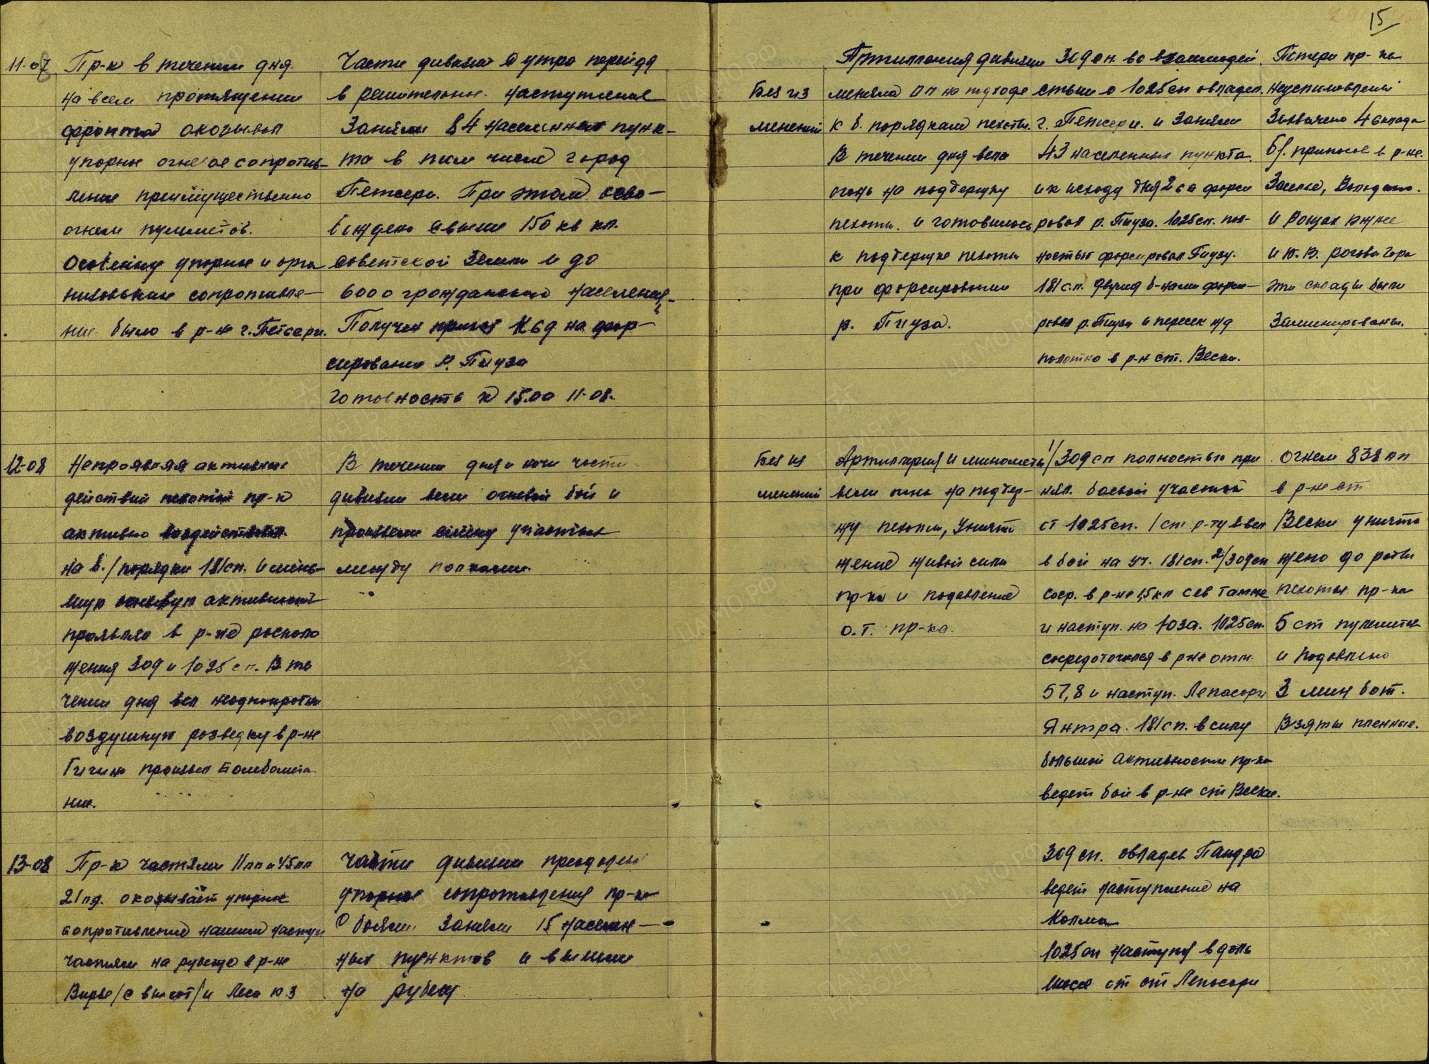 15
11-08
Пр-к в течении дня
на всем протяжении
фронта оказывал
упорное огневое сопротив-
ление преимущественно
огнем пулеметов.
Особенно упорное и орга
низованное сопротивле-
ние было в р-не г. Петсери.
Части дивизии с утра перейдя
в решительное наступление
Заняли 84 населенных пунк-
та в том числе город
Петсери. При этом осво-
бождено свыше 150 кв км.
советской Земли и до
6000 гражданского населения.
Получен приказ КСД на фор-
сирование р. Пиуза
готовность к 15.00 11-08.
Без из
менений
Артиллерия дивизии
меняла ОП на подходе
к б. порядкам пехоты.
В течении дня вела
огонь на поддержку
пехоты и готовилась
к поддержке пехоты
при форсировании
р. Пиуза.
309 сп. во взаимодей
ствии с 1025 сп овладел
г. Петсери. и Заняли
43 населенных пункта.
и к исходу дня 2 са форси
ровал р. Пиуза. 1025 сп. пол-
ностью форсировал Пиузу.
181 сп. двумя б-нами форси-
ровал р. Пиуза и пересек ж/д
полотно в р-не ст. Вески.
Потери пр-ка
неустановлены
Захвачено 4 склада
б/припасов в р-не.
и Рощах южнее
и Ю.В. Рогова Гора
эти склады были
Заминированы.
12-08
Непроявляя активных
действий пехотой пр-к
активно воздействовал
на б./порядки 181 сп. и мень-
шую огневую активность
проявлял в р-не располо
жения 309 и 1025 сп. В те
чении дня вел неоднократно
воздушную разведку в р-не
произвел бомбомета
ние.
В течении дня и ночи части
дивизии вели огневой бой и
произвели смену участков
между полками.
Без из
менений
Артиллерия и минометы
вели огонь на поддер-
жку пехоты, уничто
жение живой силы
пр-ка и подавление
о.т. пр-ка.
1/309 сп полностью при
нял. боевой участок
от 1025 сп.
в бой на уч. 181 сп. 2/309 сп
соср. в р-не 1,5 км сев
и наступ. на юго. 1025 сп.
сосредоточился в р-не отм.
57,8 и наступ. Лепасари
Янтра. 181 сп. в силу
большой активности пр-ка
ведет бой в р-не ст Вески.
Огнем 838 ап
в р-не ст
Вески уничто
жено до роты
пехоты пр-ка
5 ст пулеметов
и Подавлено
3 мин бат.
Взяты пленные.
13-08
Пр-к частями 11 пп и 45 пп
21 пд. оказывает упорное
сопротивление нашим наступ
частям на рубеже в р-не
/с высот/ и Леса ю.з
Части дивизии преодолев
упорное сопротивление пр-ка
С боями Заняли 15 населен-
ных пунктов и вышли
на рубеж.
309 сп. овладев Пандра
ведет наступление на
Колма
1025 сп наступая вдоль
шоссе от ст Лепасари